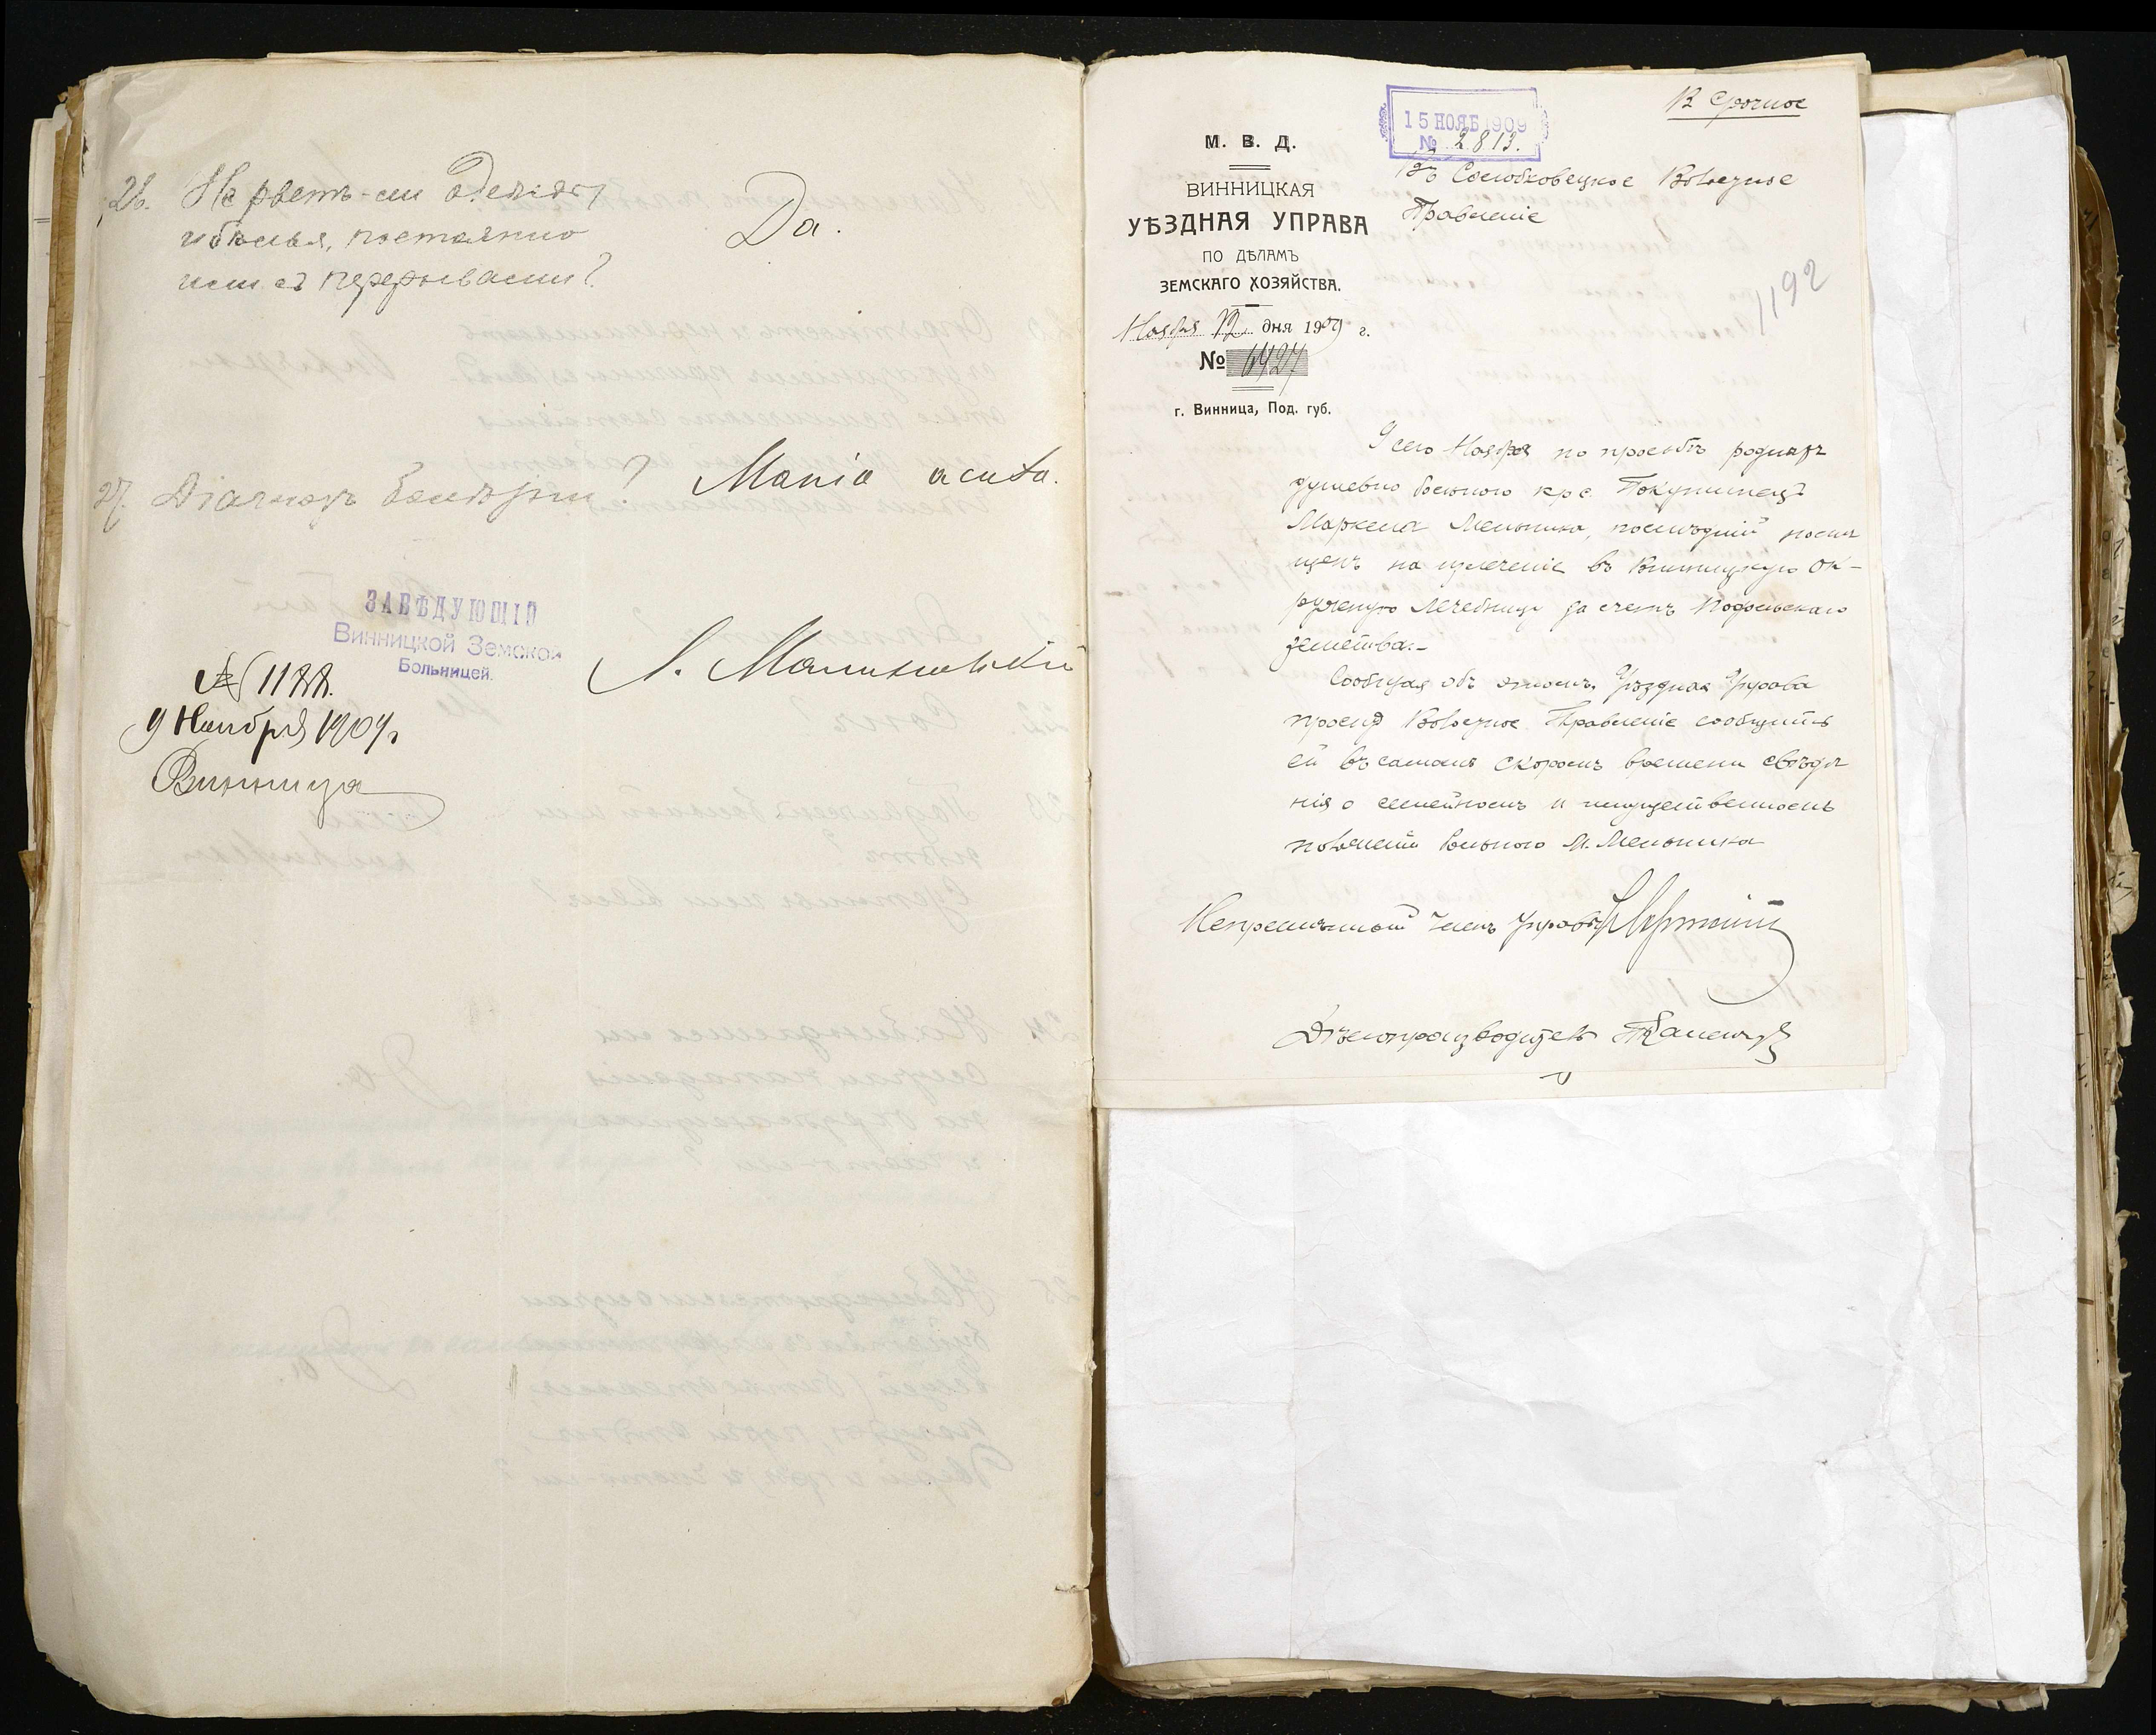 26. Не рветъ-ли одежды
и бѣлья, постоянно
или съ перерывами?
Да.
27. Діагнозъ болѣзни?
Mania acuta.
ЗАВѢДУЮЩІЙ
Винницкой Земской
Больницей.
Л. Малиновскій
№ 1188.
9 Ноября 1909 г
Винница
Срочное
15 НОЯБ 1909
№ 2813.
М. В. Д.
ВИННИЦКАЯ
УѢЗДНАЯ УПРАВА
ПО ДѢЛАМЪ
ЗЕМСКАГО ХОЗЯЙСТВА.
Ноября 12 дня 1909 г.
№ 6427
г. Винница, Под. губ.
Въ Волостное
Правленіе
1192
9 сего Ноября по просьбѣ родных
душевно больного кр. с.
Маркела Мельника, послѣдній помѣ
щенъ на излеченіе въ Винницкую Ок-
ружную Лечебницу за счетъ Подольскаго
земства.-
Сообщая объ этомъ, Уѣздная Управа
проситъ Волостное Правленіе сообщить
ей въ самомъ скоромъ времени свѣдѣ
нія о семейномъ и имущественномъ
положеніи больного М. Мельника
Непремѣнный Членъ Управы
Дѣлопроизводитель